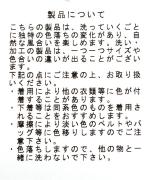 製品について
こちらの製品は、洗っていくごと
に独特の色落ちの変化があり、自
然な風合い品を楽しめます。洗い・
加工の製品は、一つ一つサイズや
色合いの違いが出ることがござい
ます。
下記の点にご注意の上、お取り扱
いください。
・着用により他の衣類等に色が付
着することがあります。
・下着等は同系色のものを着用さ
れることをおすすめします。
・摩擦により淡い色のベルトやバ
ッグ等に色移りしますのでご注
意下さい。
・色落ちしますので、他の物と一
緒に洗わないで下さい。